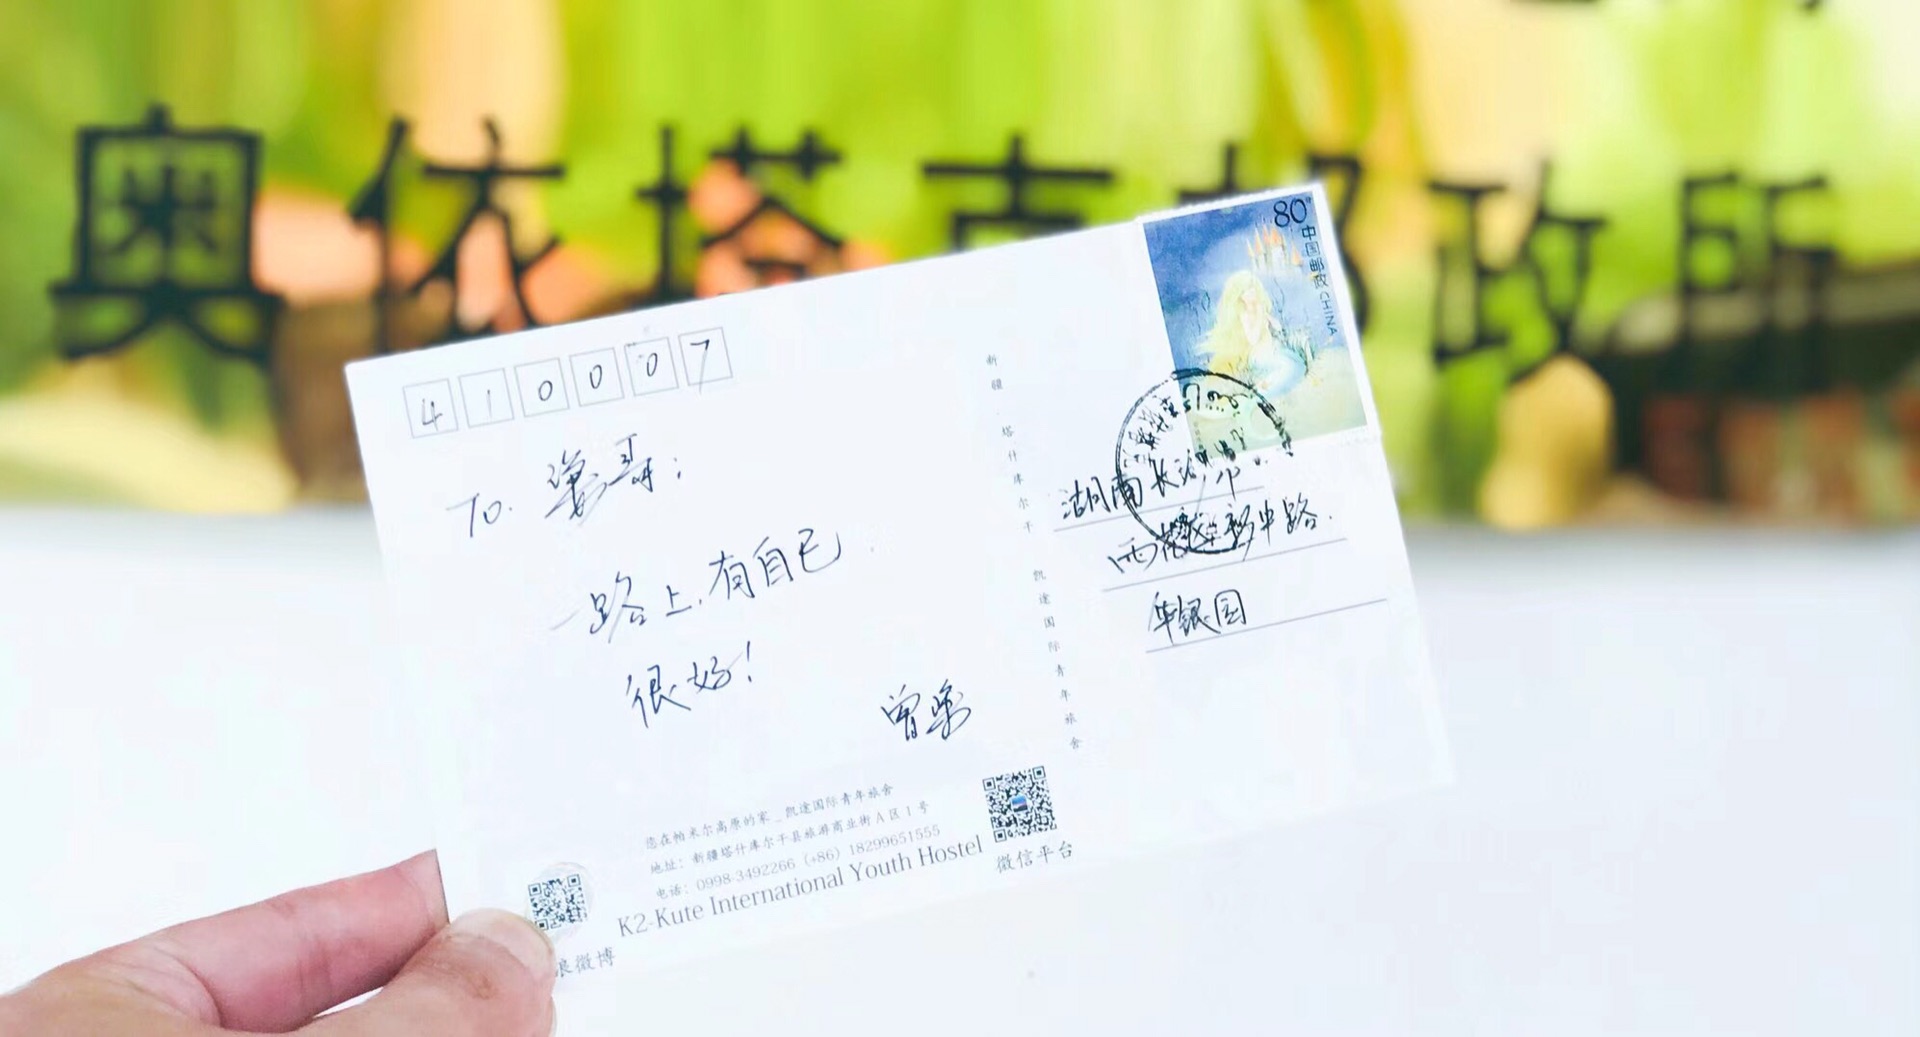 奥依塔克邮政所
80分
中国邮政 CHINA
410007
To. 龚哥：
一路上，有自己
很好！
新疆·塔什库尔干 凯途国际青年旅舍
湖南长沙市
雨花区 中路.
华银园
您在帕米尔高原的家_凯途国际青年旅舍
地址：新疆塔什库尔干县旅游商业街A区1号
电话：0998-3492266 (+86) 18299651555
K2-Kute International Youth Hostel
浪微博
微信平台